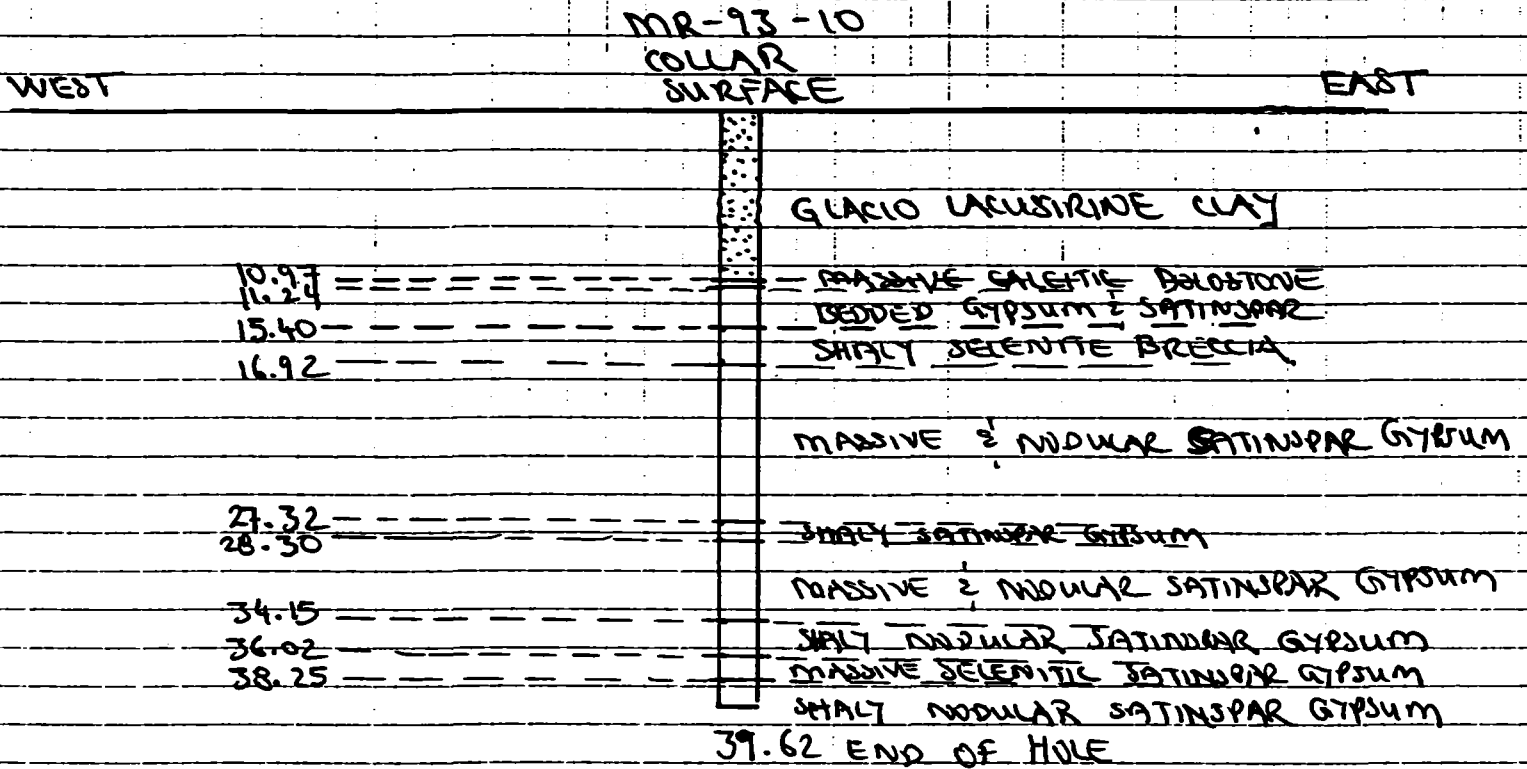 MR-93-10
COLLAR
WEST SURFACE EAST
GLACIO LACUSTRINE CLAY
10.97 MASSIVE CALCITIC DOLOSTONE
11.24 BEDDED GYPSUM & SATINSPAR
15.40 SHALY SELENITE BRECCIA
16.92
MASSIVE & NODULAR SATINSPAR GYPSUM
27.32 SHALY SATINSPAR GYPSUM
28.30
MASSIVE & NODULAR SATINSPAR GYPSUM
34.15
36.02 SHALY NODULAR SATINSPAR GYPSUM
38.25 MASSIVE SELENITIC SATINSPAR GYPSUM
SHALY NODULAR SATINSPAR GYPSUM
39.62 END OF HOLE